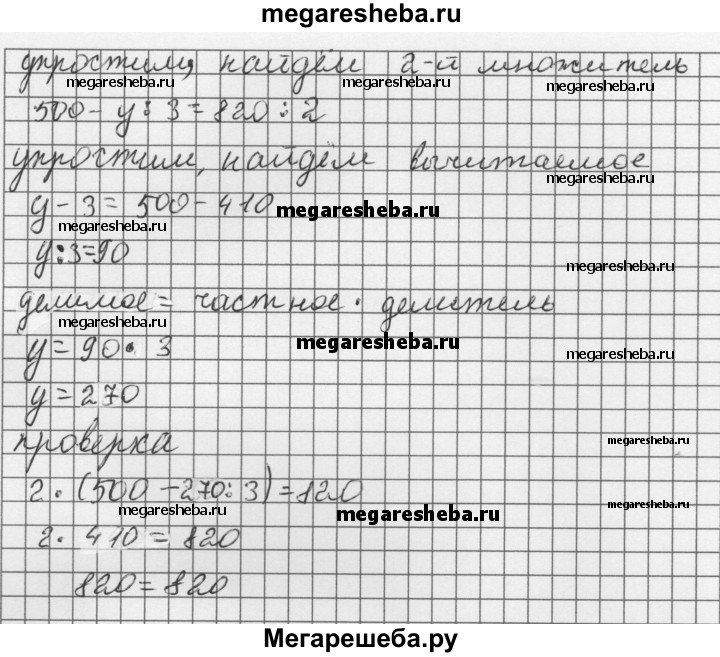 megaresheba.ru
упростим, найдём 2-й множитель
megaresheba.ru megaresheba.ru megaresheba.ru
500 - y : 3 = 820 : 2
упростим, найдём вычитаемое
megaresheba.ru
y - 3 = 500 - 410 megaresheba.ru
megaresheba.ru
y : 3 = 90 megaresheba.ru
делимое = частное · делитель
megaresheba.ru
y = 90 · 3 megaresheba.ru megaresheba.ru
y = 270
проверка megaresheba.ru
2 · (500 - 270 : 3) = 820
megaresheba.ru megaresheba.ru megaresheba.ru
2 · 410 = 820
820 = 820
Мегарешеба.ру